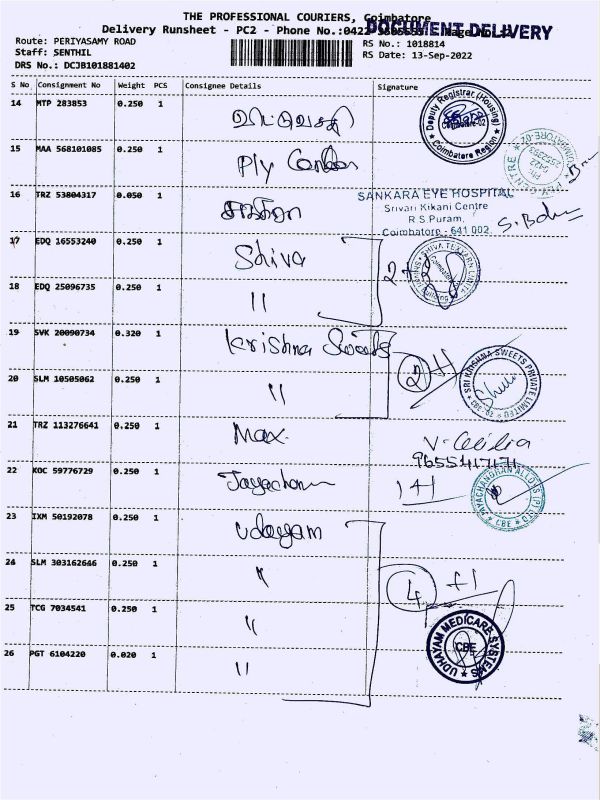 THE PROFESSIONAL COURIERS, Coimbatore
Delivery Runsheet - PC2 - Phone No.:0422
DOCUMENT DELIVERY
Route: PERIYASAMY ROAD
RS No.: 1018814
Staff: SENTHIL
RS Date: 13-Sep-2022
DRS No.: DCJB101881402
S No Consignment No Weight PCS Consignee Details Signature
14 MTP 283853 0.250 1
Deputy Registrar (Housing) Coimbatore Region
Coimbatore-02
15 MAA 568101085 0.250 1 Ply Center
16 TRZ 53804317 0.050 1
SANKARA EYE HOSPITAL
Srivari Kikani Centre
R.S.Puram,
Coimbatore - 641 002.
17 EDQ 16553240 0.250 1 Shiva
SHIVA TEXYARN LIMITED
18 EDQ 25096735 0.250 1 11
19 SVK 20090734 0.320 1 Krishna Sweets
2+1
20 SLM 10505062 0.250 1 11
SRI KRISHNA SWEETS PRIVATE LIMITED
21 TRZ 113276641 0.250 1 Max.
9655417171
22 KOC 59776729 0.250 1 Jayachan
1+1
JAYACHANDRAN ALLOYS (P) LTD CBE
23 IXM 50192078 0.250 1 Udayam
24 SLM 303162646 0.250 1 "
4 +1
25 TCG 7034541 0.250 1 "
UDHAYAM MEDICARE SYSTEMS
CBE
26 PGT 6104220 0.020 1 11